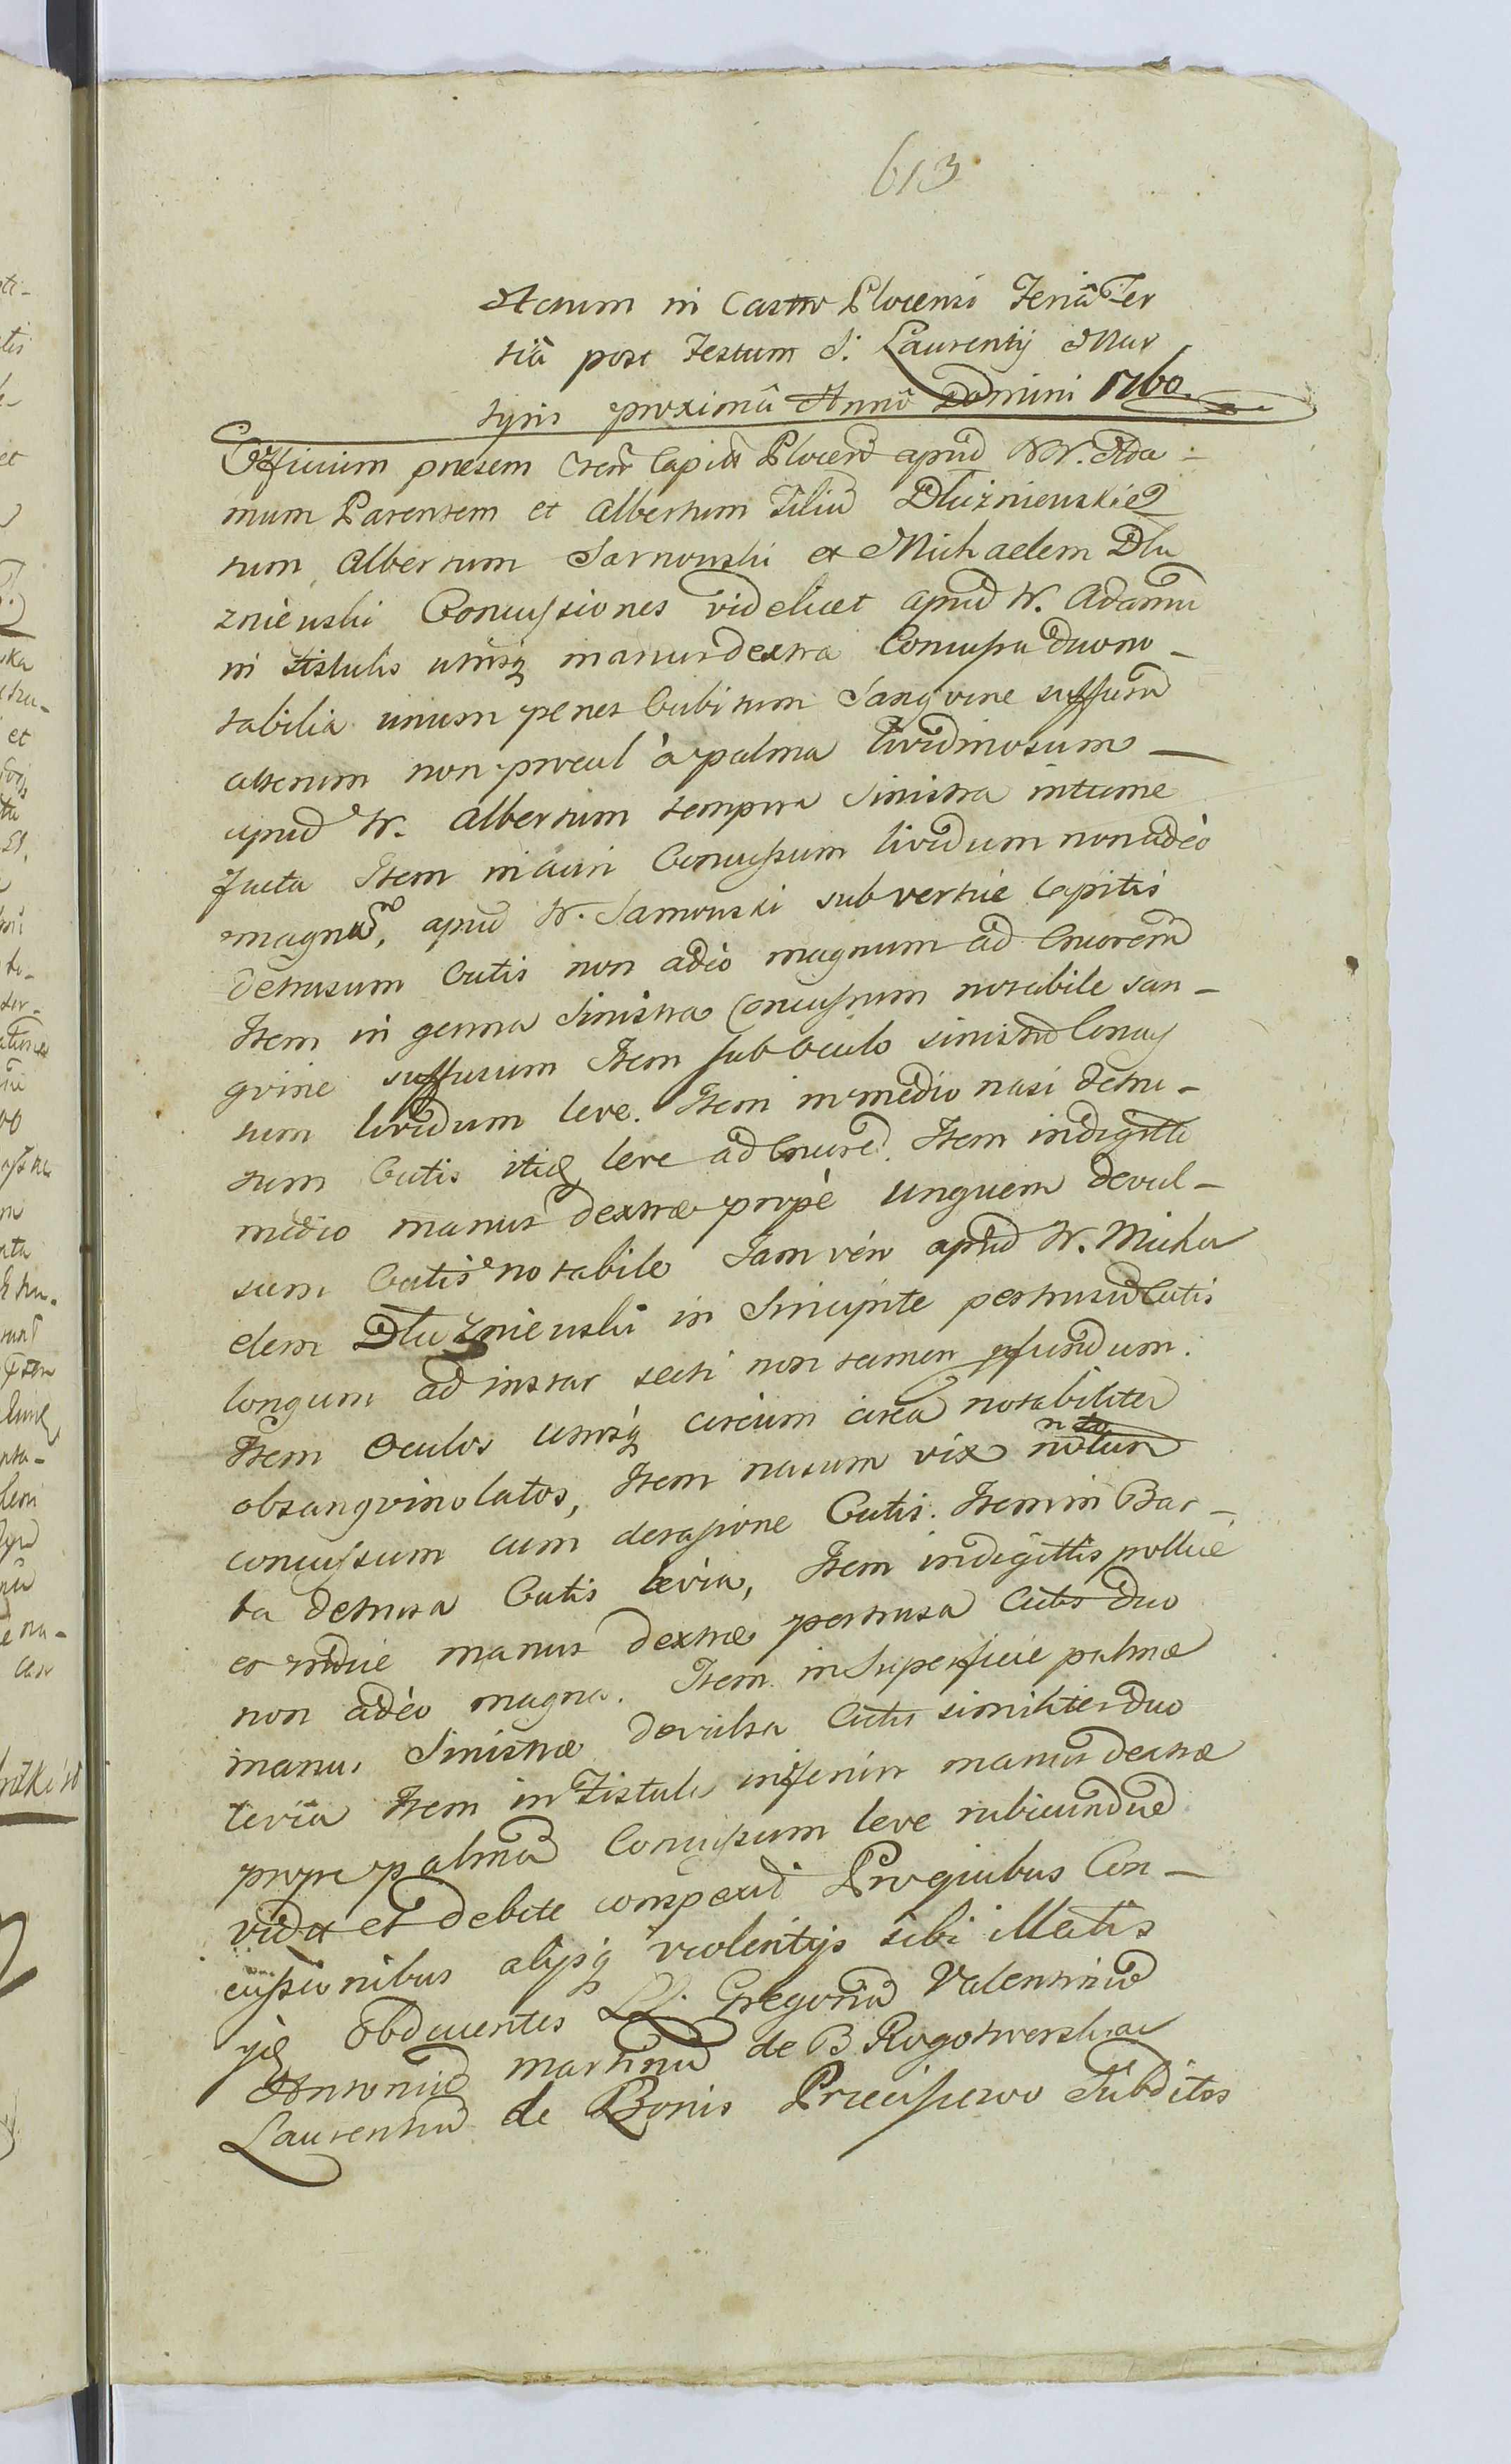 613
Actum in Castro Plocensi Feriâ Ter
tiâ post Festum S: Laurentij Mar
tyris proximâ Annô Domini 1760.
Officium praesens Cren Capitt Plocen apud WW. Ada-
mum Parentem et Albertum Filium Dłużniewskie
tum Albertum Sarnowski et Michaelem Dłu
żniewski Concussiones videlicet apud W. Adamu
in Fistulis utriusq manus dextra Concussa duo no-
tabilia unum penes Cubitum Sangvine suffusu
alterum non procul à palma lividinosum
apud W. Albertum tempora Sinistra intume
facta Item in auri Concussum lividum non adèo
magnu, apud W. Sarnowski sub vertice Capitis
detrusum Cutis non adèo magnum ad Cruorem
Item in genna Sinistra Concussum notabile san-
gvine suffusum Item sub Oculo sinistro Concus
sum lividum leve. Item in medio nasi detru-
sum Cutis itiq leve ad Cruore. Item in digitti
medio manus dextrae propè unguem devul-
sum Cutis notabile Jam verò apud W. Micha
elem Dłużniewski in Sincipite pertrusu Cutis
longum ad instar secti non tamen pfundum.
Item Oculos utrosq circum circa notabiliter
obsangvinolatos, Item nasum vix
concussum cum derassione Cutis. Item in Bar-
ba detrusa Cutis levia, Item in digittis pollice
et indice manus dextrae pertrusa Cutis duo
non adèo magna. Item in Superficie palmae
manus Sinistrae devulsa Cutis similiter duo
levia Item in Fistula inferiori manus dextrae
prope palmâ Concussum leve rubicundu
vidit et debite conspexit Pro quibus Con-
cussionibus alijsq violentijs sibi illatis
ijd Obducentes LL. Gregoriu Valentinu
Antoniu Martinu de B Rogotwersk
Laurentiu de Bonis Precissewo Subditos